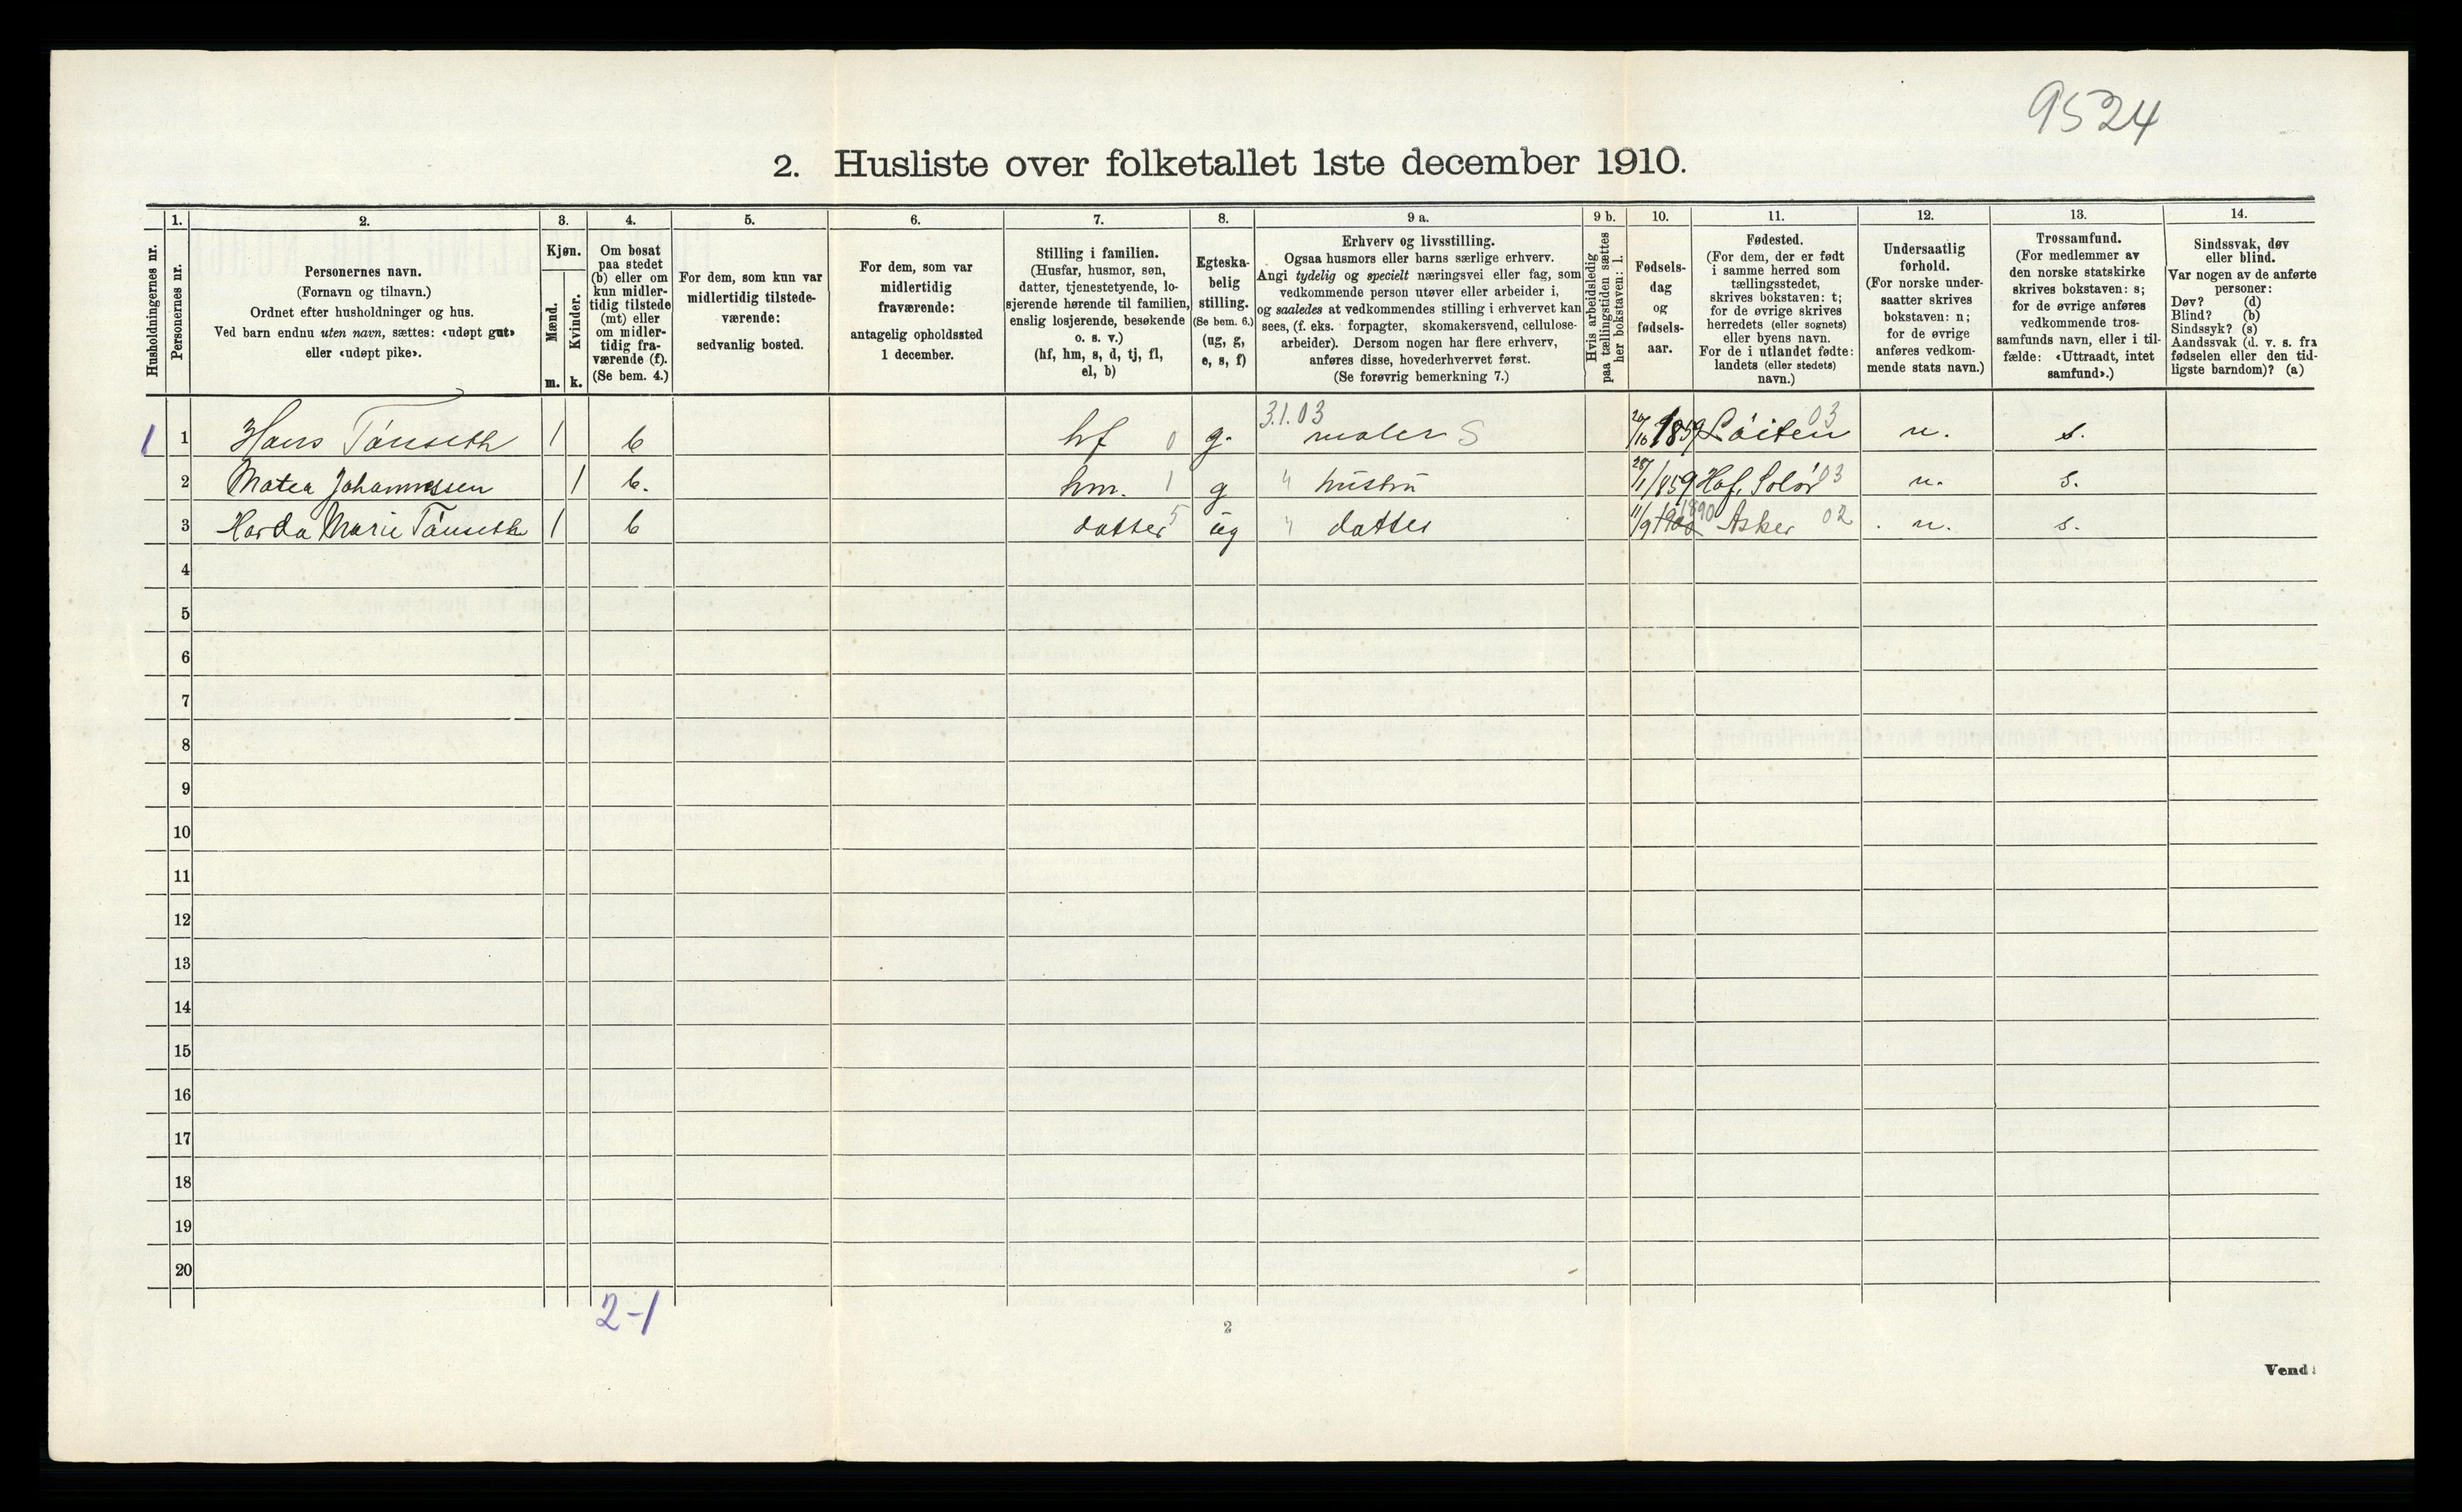 9524
2. Husliste over folketallet 1ste december 1910.
Husholdningernes nr.
1.
Personernes nr.
2.
Personernes navn.
(Fornavn og tilnavn.)
Ordnet efter husholdninger og hus.
Ved barn endnu uten navn, sættes: «udøpt gut»
eller «udøpt pike».
3.
Kjøn.
Mænd.
Kvinder.
m. k.
4.
Om bosat
paa stedet
(b) eller om
kun midler-
tidig tilstede
(mt) eller
om midler-
tidig fra-
værende (f).
(Se bem. 4.)
5.
For dem, som kun var
midlertidig tilstede-
værende:
sedvanlig bosted.
6.
For dem, som var
midlertidig
fraværende:
antagelig opholdssted
1 december.
7.
Stilling i familien.
(Husfar, husmor, søn,
datter, tjenestetyende, lo-
sjerende hørende til familien,
enslig losjerende, besøkende
o. s. v.)
(hf, hm, s, d, tj, fl,
el, b)
8.
Egteska-
belig
stilling.
(Se bem. 6.)
(ug, g,
e, s, f)
9 a.
Erhverv og livsstilling.
Ogsaa husmors eller barns særlige erhverv.
Angi tydelig og specielt næringsvei eller fag, som
vedkommende person utøver eller arbeider i,
og saaledes at vedkommendes stilling i erhvervet kan
sees, (f. eks. forpagter, skomakersvend, cellulose-
arbeider). Dersom nogen har flere erhverv,
anføres disse, hovederhvervet først.
(Se forøvrig bemerkning 7.)
9 b.
Hvis arbeidsledig
paa tællingstiden sættes
her bokstaven: l.
10.
Fødsels-
dag
og
fødsels-
aar.
11.
Fødested.
(For dem, der er født
i samme herred som
tællingsstedet,
skrives bokstaven: t;
for de øvrige skrives
herredets (eller sognets)
eller byens navn.
For de i utlandet fødte:
landets (eller stedets)
navn.)
12.
Undersaatlig
forhold.
(For norske under-
saatter skrives
bokstaven: n;
for de øvrige
anføres vedkom-
mende stats navn.)
13.
Trossamfund.
(For medlemmer av
den norske statskirke
skrives bokstaven: s;
for de øvrige anføres
vedkommende tros-
samfunds navn, eller i til-
fælde: «Uttraadt, intet
samfund».)
14.
Sindssvak, døv
eller blind.
Var nogen av de anførte
personer:
Døv? (d)
Blind? (b)
Sindssyk? (s)
Aandssvak (d. v. s. fra
fødselen eller den tid-
ligste barndom)? (a)
1 1 Hans Tánseth 1 b hf 0 g. 31.03 maler S 1859 Löiten 03 n. s.
2 Matea Johannessen 1 b. hm. 1 g " hustru 28/1 1859 Hof, Solør 03 n. s.
3 Marie Tánseth 1 b datter 5 ug " datter 11/9 1890 Asker 02 n. s.
4
5
6
7
8
9
10
11
12
13
14
15
16
17
18
19
20
2-1
2
Vend